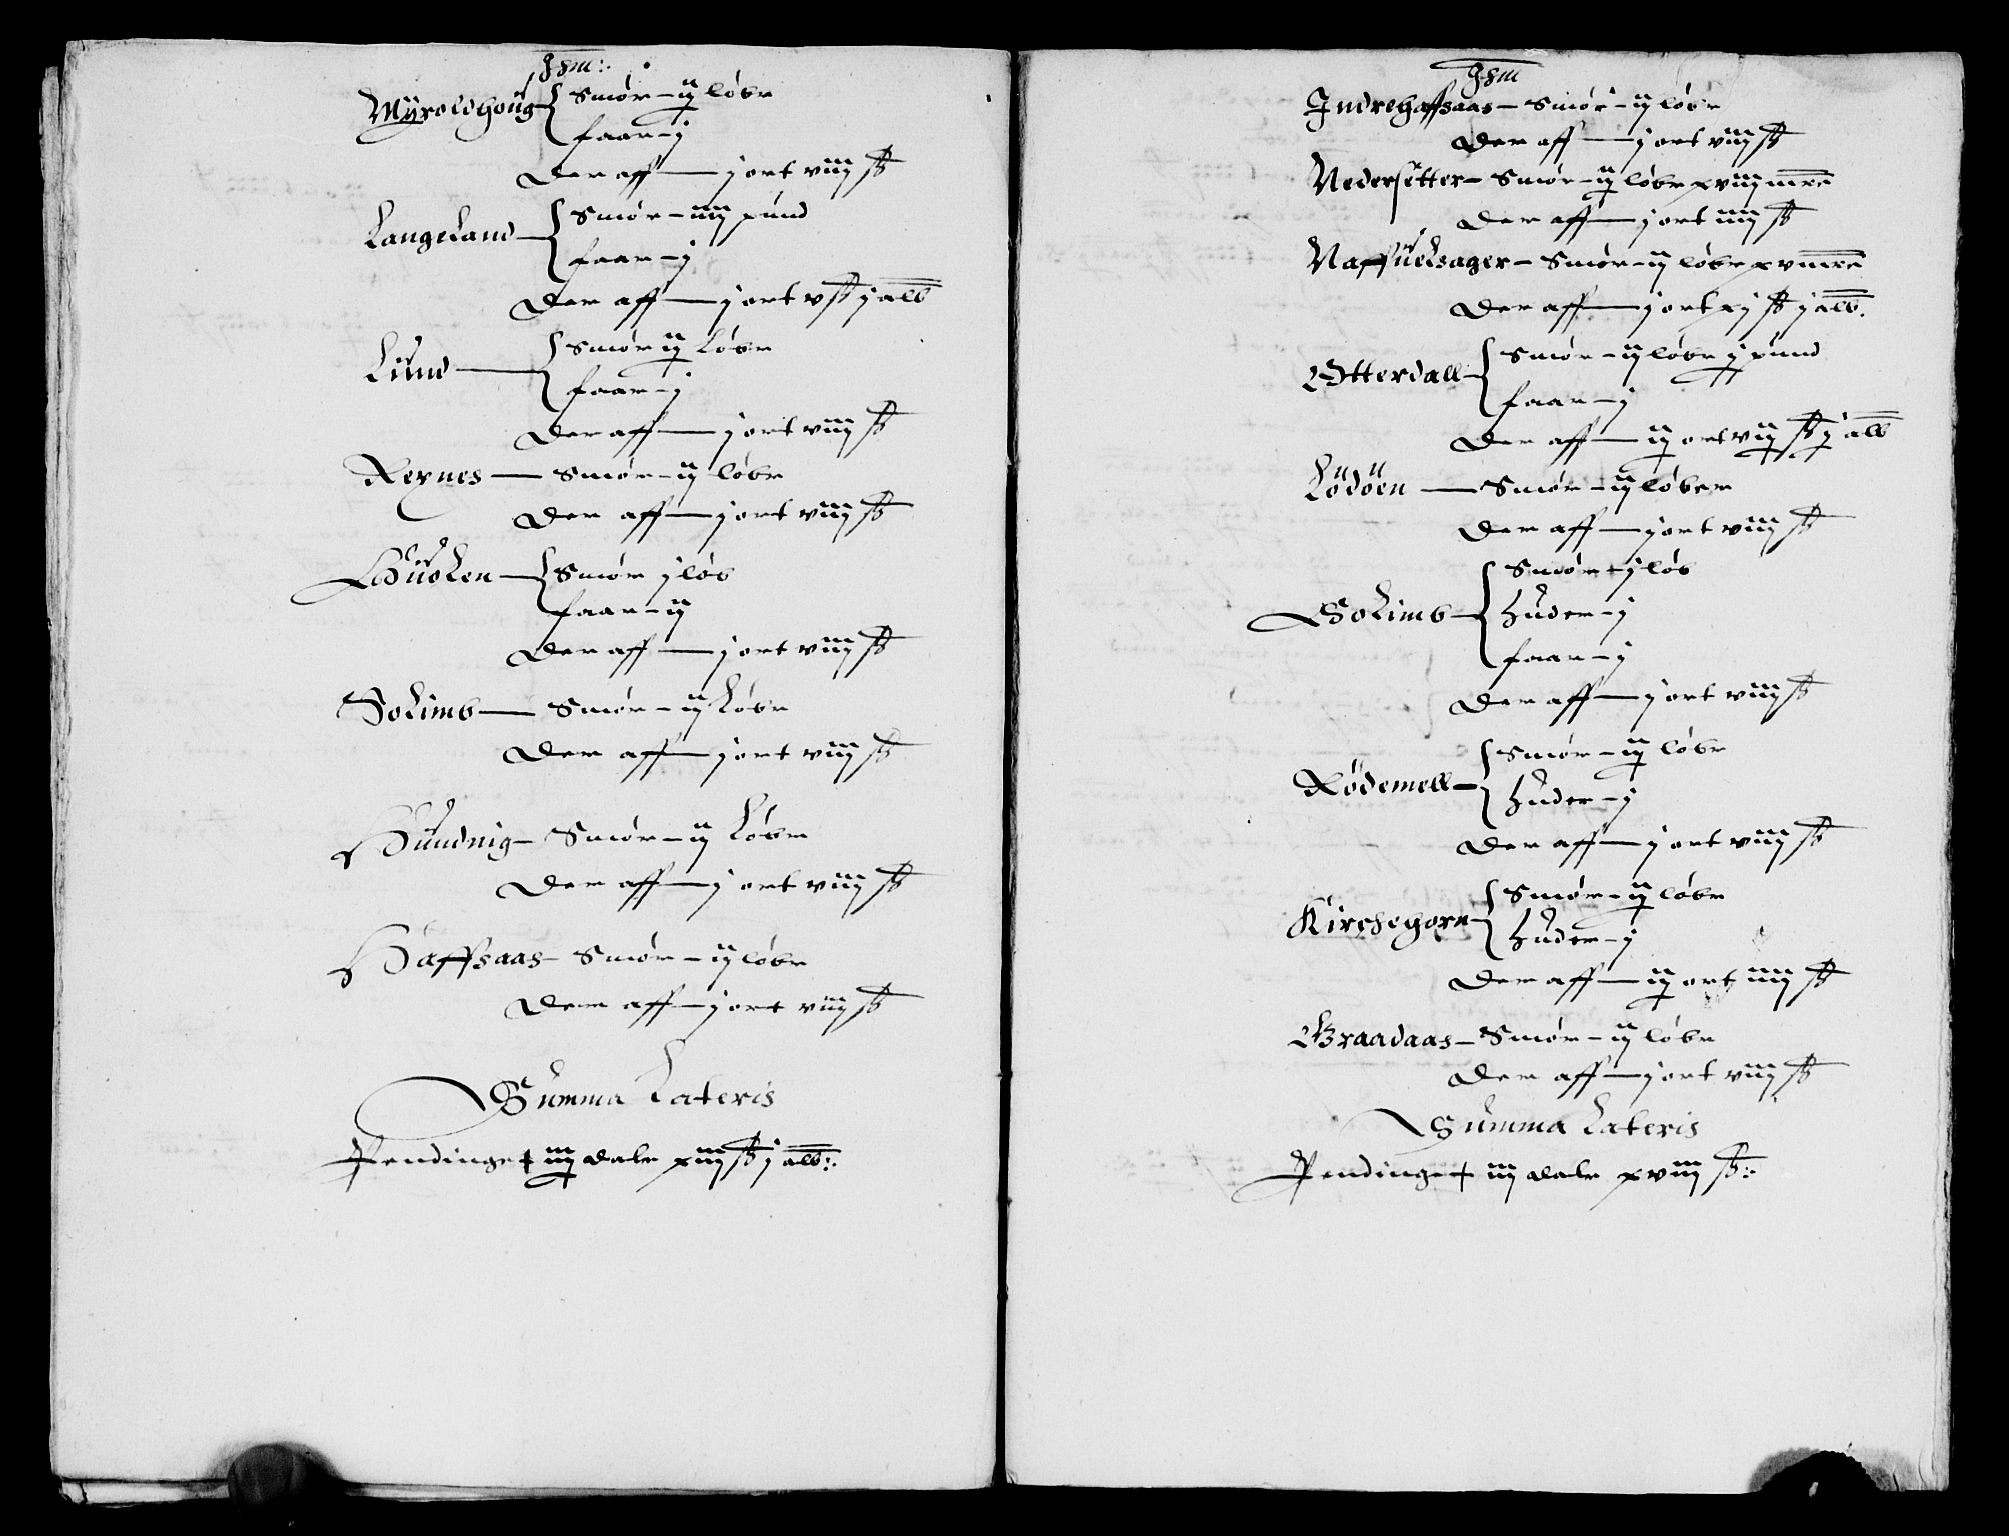 Jtem:
Myroldhoug Smør – ij løbe
faar – j
Der aff — j ort viij ß
Langeland — Smør – iiij pund
faar – j
Der aff — j ort v ß j alb
Lund — Smør ij løbe
faar – j
Der aff — j ort viij ß
Reynes — Smør – ij løbe
Der aff — j ort viij ß
Husken — Smør j løb
faar – ij
Der aff — j ort viij ß
Solimb — Smør – ij Løbe
Der aff — j ort viij ß
Hundnig – Smør – ij Løbe
Der aff — j ort viij ß
Haffsaas – Smør – ij løbe
Der aff — j ort viij ß
Summa Lateris
Pendinge iij dale xiij ß j alb:.
Jtem
Indrehaffsaas – Smør – ij løbe
Der aff — j ort viij ß
Nedersetter – Smør – ij løbe xviij mrc
Der aff — j ort iiij ß
Naffuelsager – Smør – ij løbe xv mrc
Der aff — j ort xj ß j alb.
Otterdall – Smør – ij løbe j pund
faar – j
Der aff — ij ort vij ß j alb
Lödöen — Smør – ij løber
Der aff — j ort viij ß
Solimb – Smør – j løb
huder – j
faar – j
Der aff — j ort viij ß
Rödemell – Smør – ij løbe
huder – j
Der aff — j ort viij ß
Kirchegorn – Smør – ij løbe
huder – j
Der aff — ij ort iiij ß
Braadaas – Smør – ij løbe
Der aff — j ort viij ß
Summa Lateris
Pendinge iiij dale xviij ß: